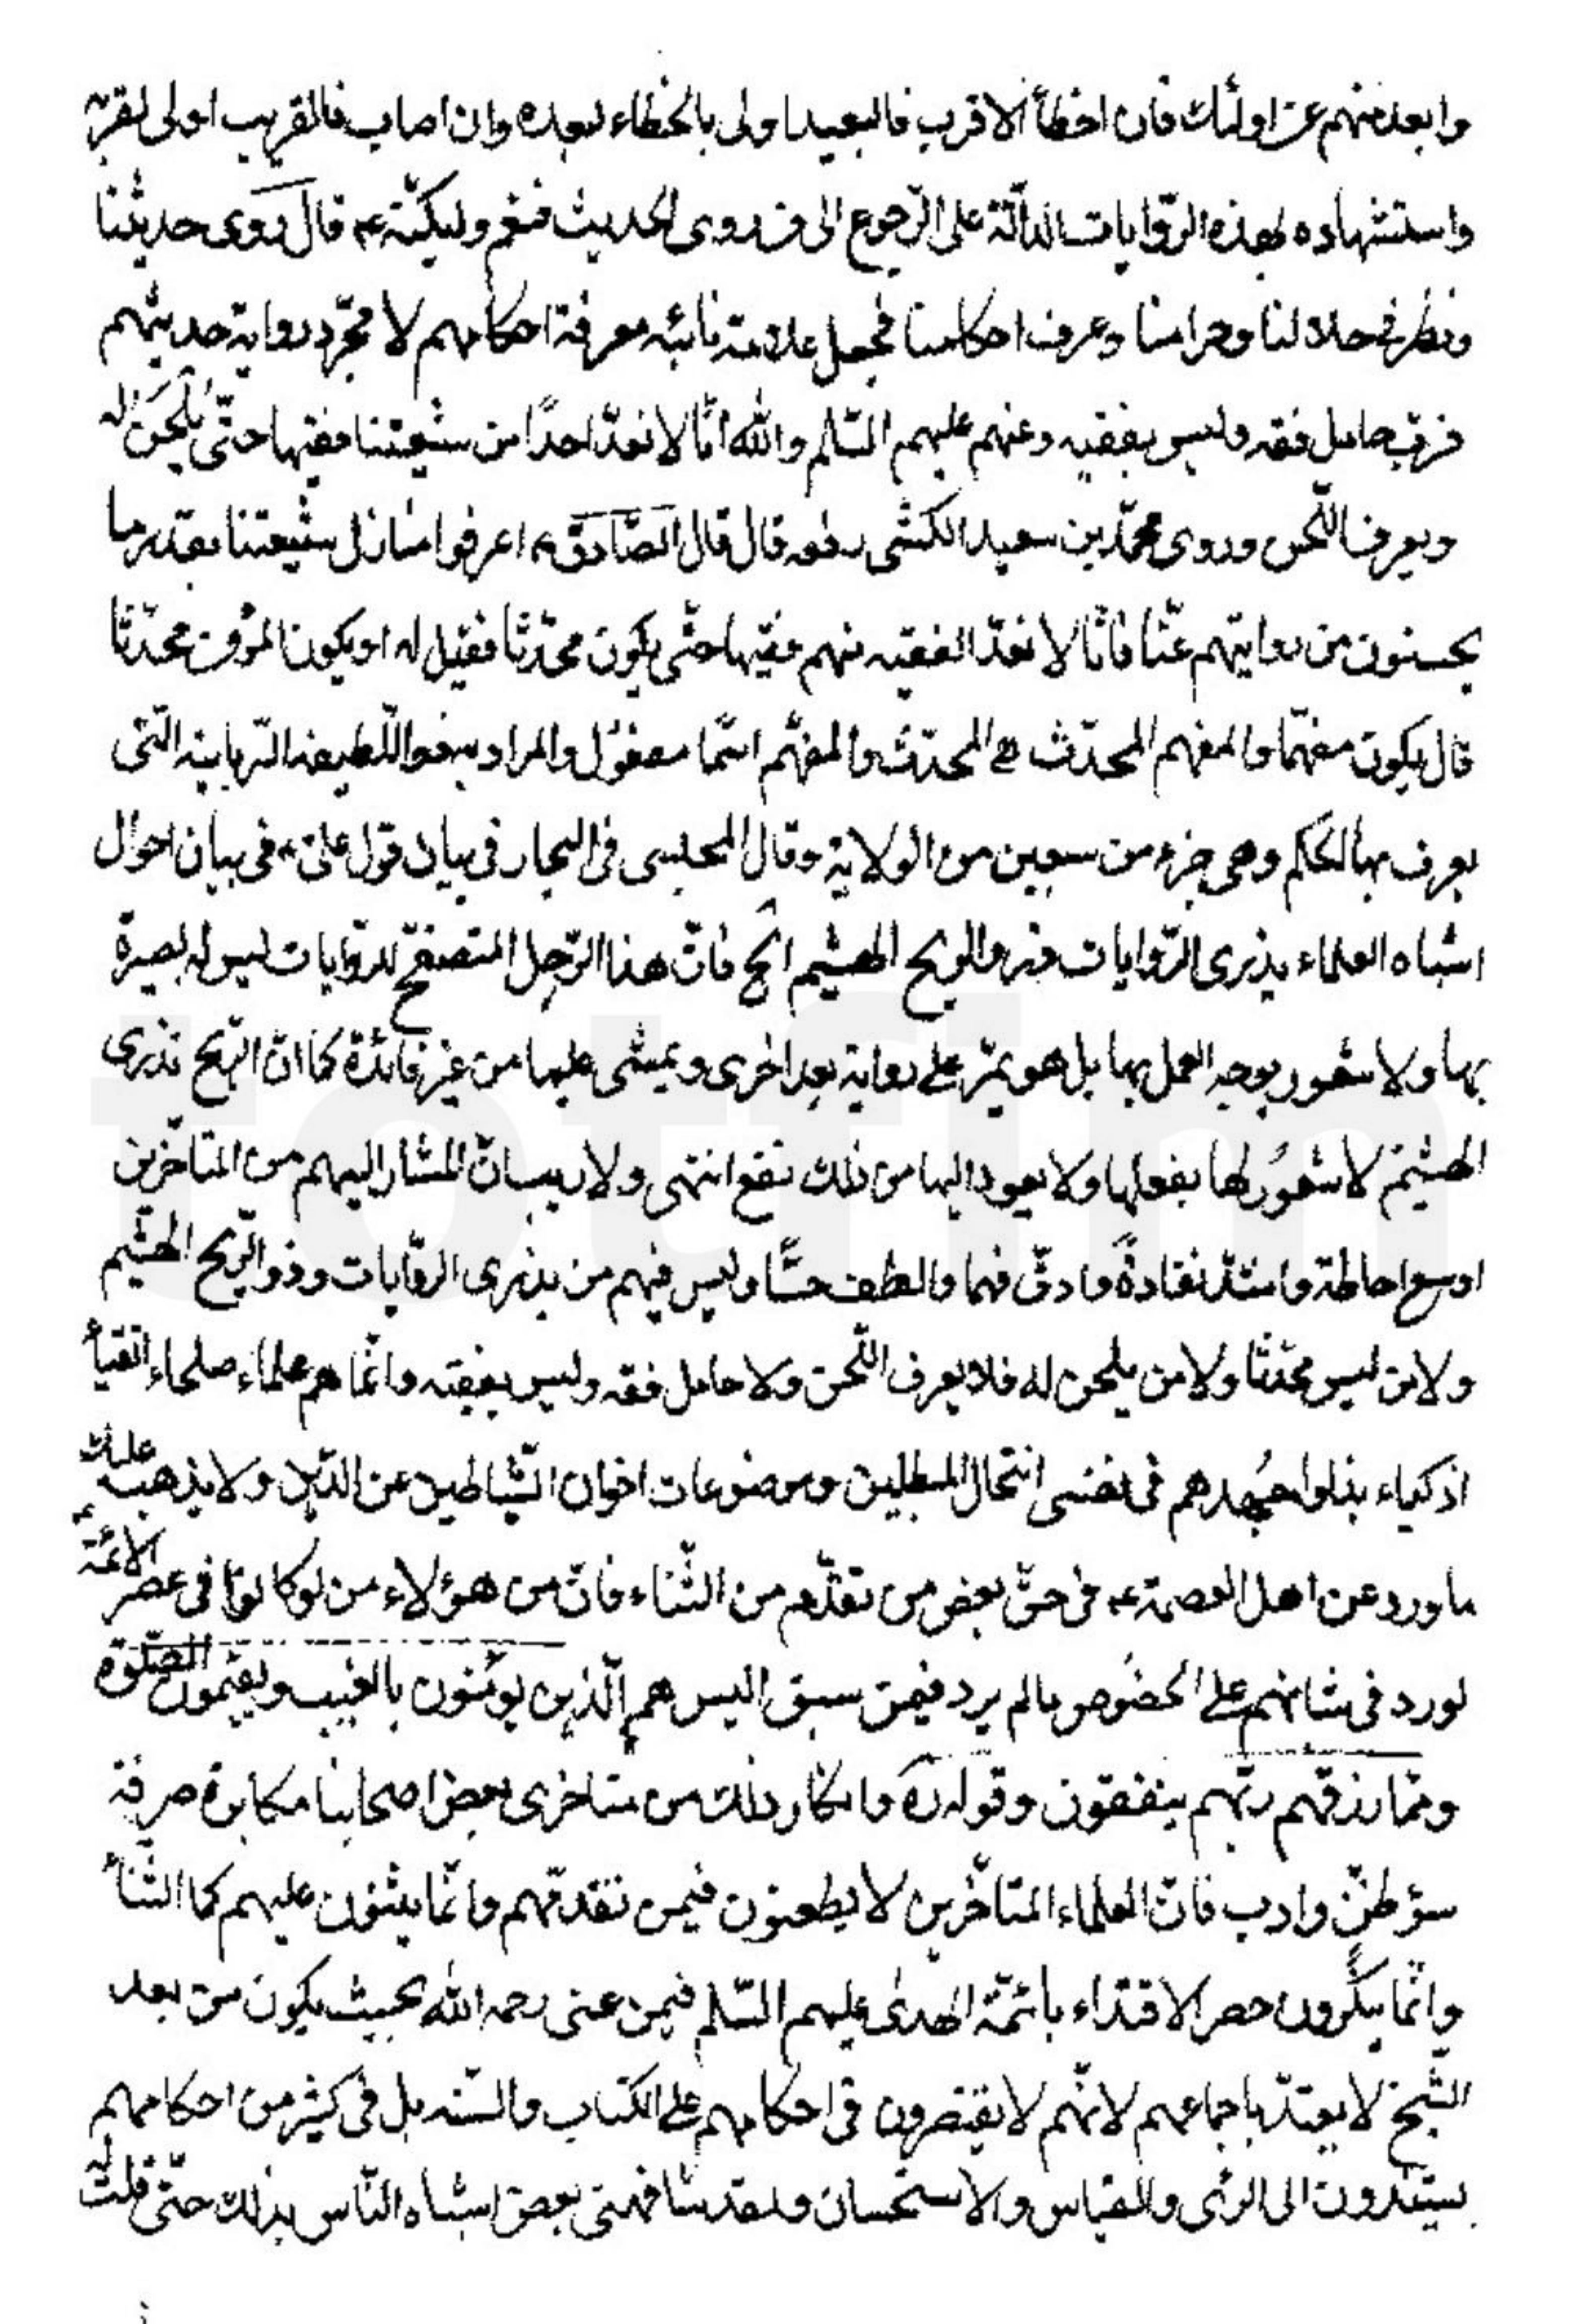 وابعد منهم عن اولئك فان اخطأ الاقرب فالبعيد اولى بالخطاء لبعده وان اصاب فالقريب اولى لقربه
واستشهاده لهذه الروايات الدالّة على الرّجوع الى من روى الحديث فنعم وليكنّه ع قال روى حديثنا
ونظر في حلالنا وحرامنا وعرف احكامنا فجعل علامة نائبه معرفة احكامهم لا مجرّد رواية حديثهم
فربّ حامل فقه وليس بفقيه وعنهم عليهم السّلم والله انّا لا نعدّ احدًا من شيعتنا فقيها حتّى يُلحَن له
ويعرف اللّحن وروى محمّد بن سعيد الكشّى رفعه قال قال الصّادق ع اعرفوا منازل شيعتنا بقدر ما
يحسنون من روايتهم عنّا فانّا لا نعدّ الفقيه منهم فقيها حتّى يكون محدّثا فقيل له او يكون المؤمن محدّثا
قال يكون مفهّما والمفهم المحدّث والمحدّث والمفهّم اسما مفعول والمراد اللّطيفة الرّبانية التى
يعرف بها الحكم وهى جزء من سبعين من الولاية وقال المجلسى فى البحار فى بيان قول علىّ ع فى بيان احوال
اشباه العلماء يذرى الرّوايات ذرو الريح الهشيم الخ فانّ هذا الرّجل المتصفّح للرّوايات ليس له بصيرة
بها ولا شعور بوجه العمل بها بل هو يمرّ على رواية بعد اخرى ويمشى عليها من غير فائدة كما انّ الرّيح تذرى
الهشيم لا شعُور لها بفعلها ولا يعود اليها من ذلك نفع انتهى ولا ريب انّ المشار اليهم من المتاخّرين
اوسع احاطة واشدّ نقادةً وادقّ فهما والطف حسًّا وليس فيهم من يذرى الرّوايات ذرو الرّيح الهشيم
ولا من ليس محدّثا ولا من يلحن له فلا يعرف اللّحن ولا حامل فقه وليس بفقيه وانّما هم علماء صلحاء اتقياء
اذكياء بذلوا جُهدهم فى نفى انتحال المبطلين وموضوعات اخوان الشّياطين عن الدّين ولا يذهب عليك
ما ورد عن اهل العصمة ع فى حقّ بعض من تقدّم من الثّناء فانّ من هؤلاء من لو كانوا فى عصر الائمّة ع
لورد فى شانهم على الخصُوص ما لم يرد فيمن سبق اليس هم الّذين يؤمنون بالغيب ويقيمون الصّلوة
وممّا رزقهم ربّهم ينفقون وقوله ره وانكار ذلك من متاخرى بعض اصحابنا مكابرة صرفة
سؤ ظنّ وادب فانّ العلماء المتاخّرين لا يطعنون فيمن تقدّمهم وانّما يثنون عليهم كمال الثّناء
وانّما ينكّرون حصر الاقتداء بائمّة الهدى عليهم السّلم فيمن عنى رحمه الله بحيث يكون من بعد
الشّيخ لا يعتدّ باجماعهم لانّهم لا يقتصرون فى احكامهم على الكتاب والسّنه بل فى كثير من احكامهم
يستندون الى الرئى والقياس والاستحسان ولقد شافهنى بعض اشباه النّاس بذلك حتّى قلت له